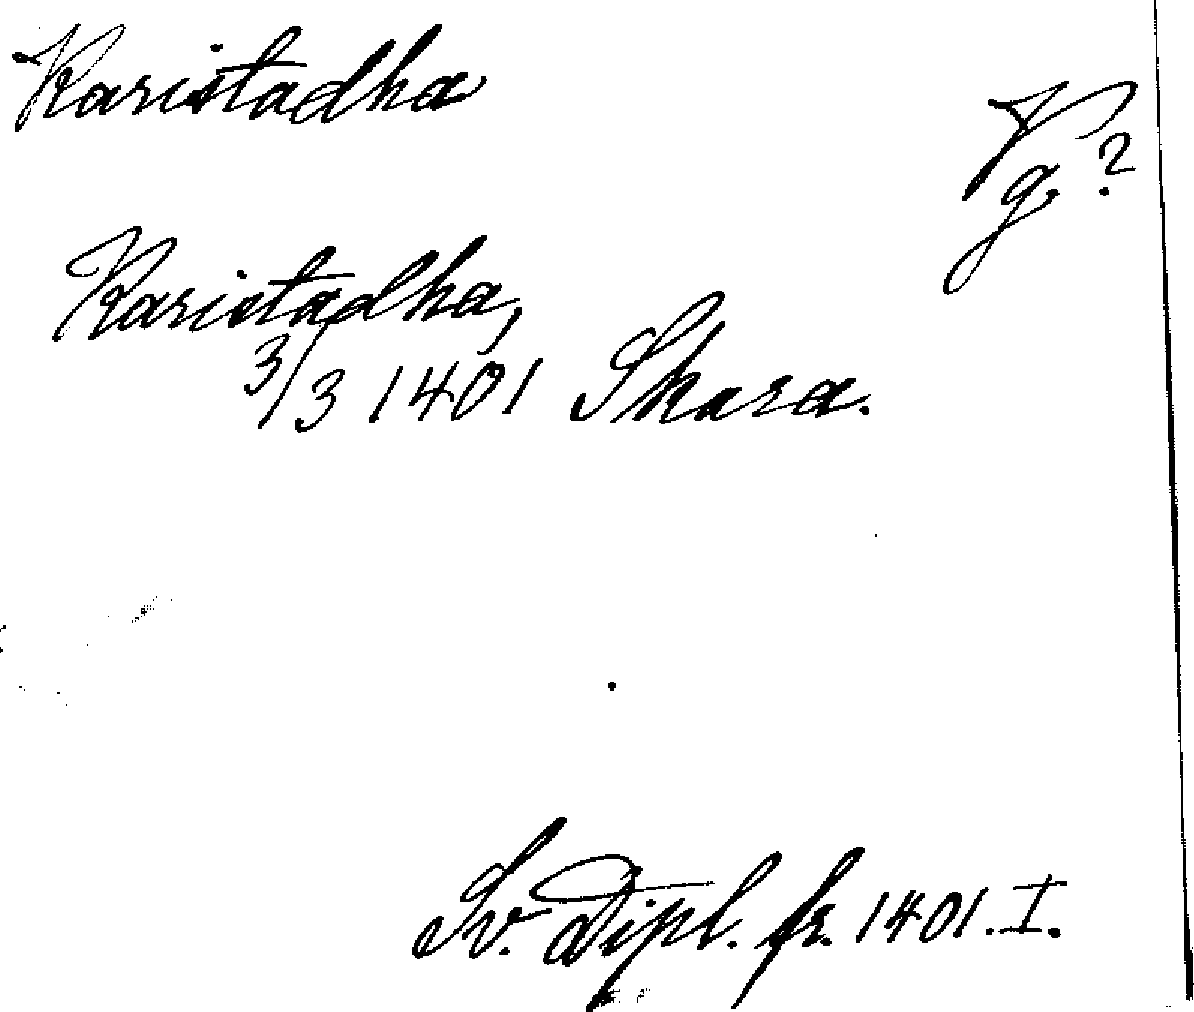 Karistadha
Vg. ?
Karistadha,
3/3 1401 Skara.
Sv. Dipl. fr. 1401. I.